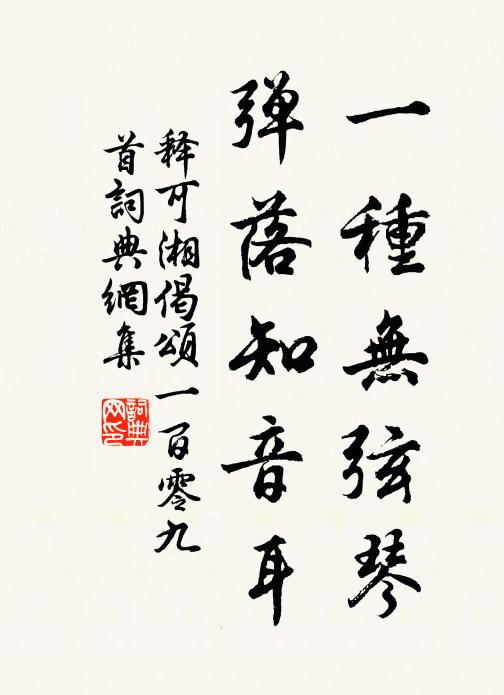 一種無弦琴
弹落知音耳
释可湘偈頌一百零九
首詞典網集
詞典
网印